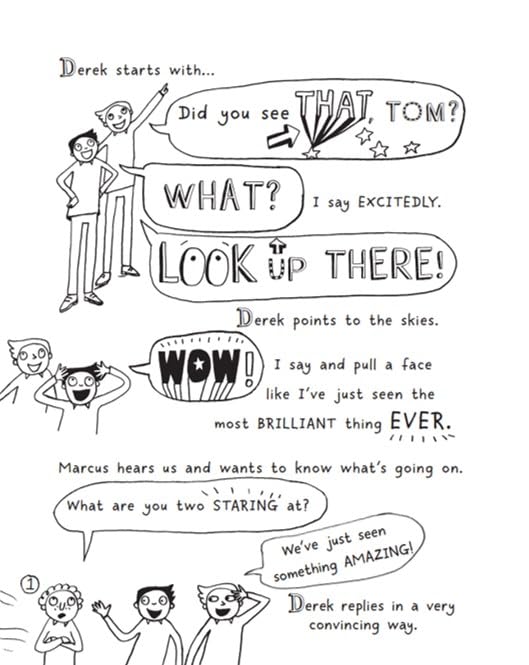 Derek starts with...
Did you see THAT, TOM?
WHAT? I say EXCITEDLY.
LOOK UP THERE!
Derek points to the skies.
WOW! I say and pull a face
like I've just seen the
most BRILLIANT thing EVER.
Marcus hears us and wants to know what's going on.
What are you two STARING at?
We've just seen
something AMAZING!
1
Derek replies in a very
convincing way.